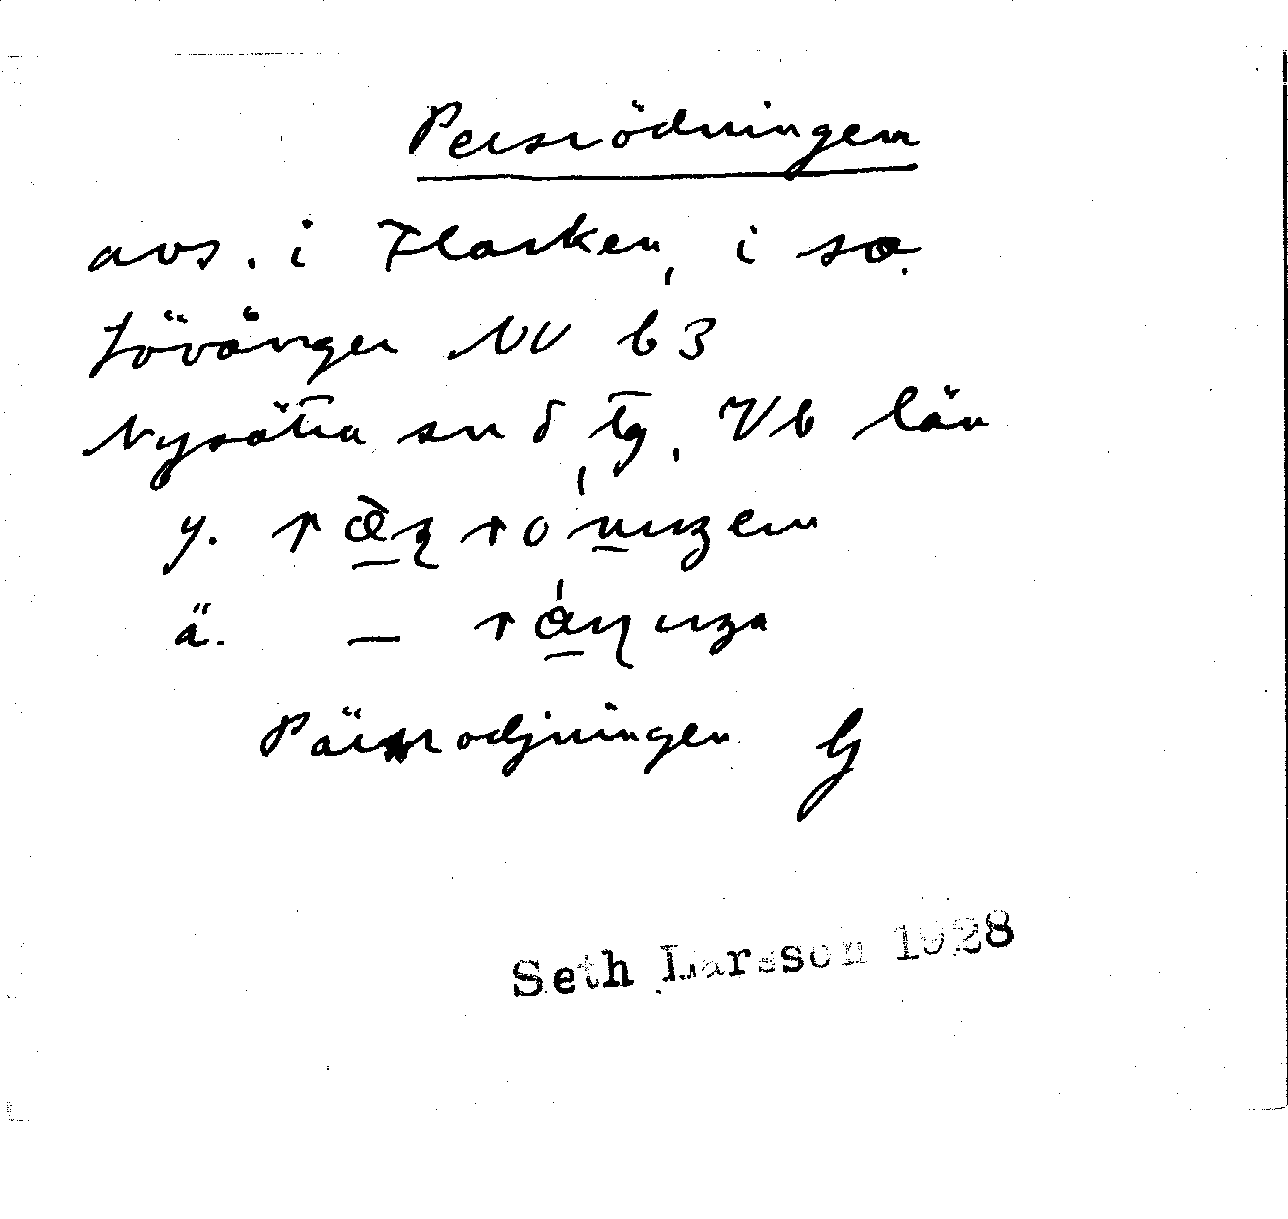 Persrödningen
avs. i Flarken, i so.
Lövånger NV b 3
Nysätra sn o tg, Vb län
y.
ä. —
Pärsrodjningen G
Seth Larsson 1928